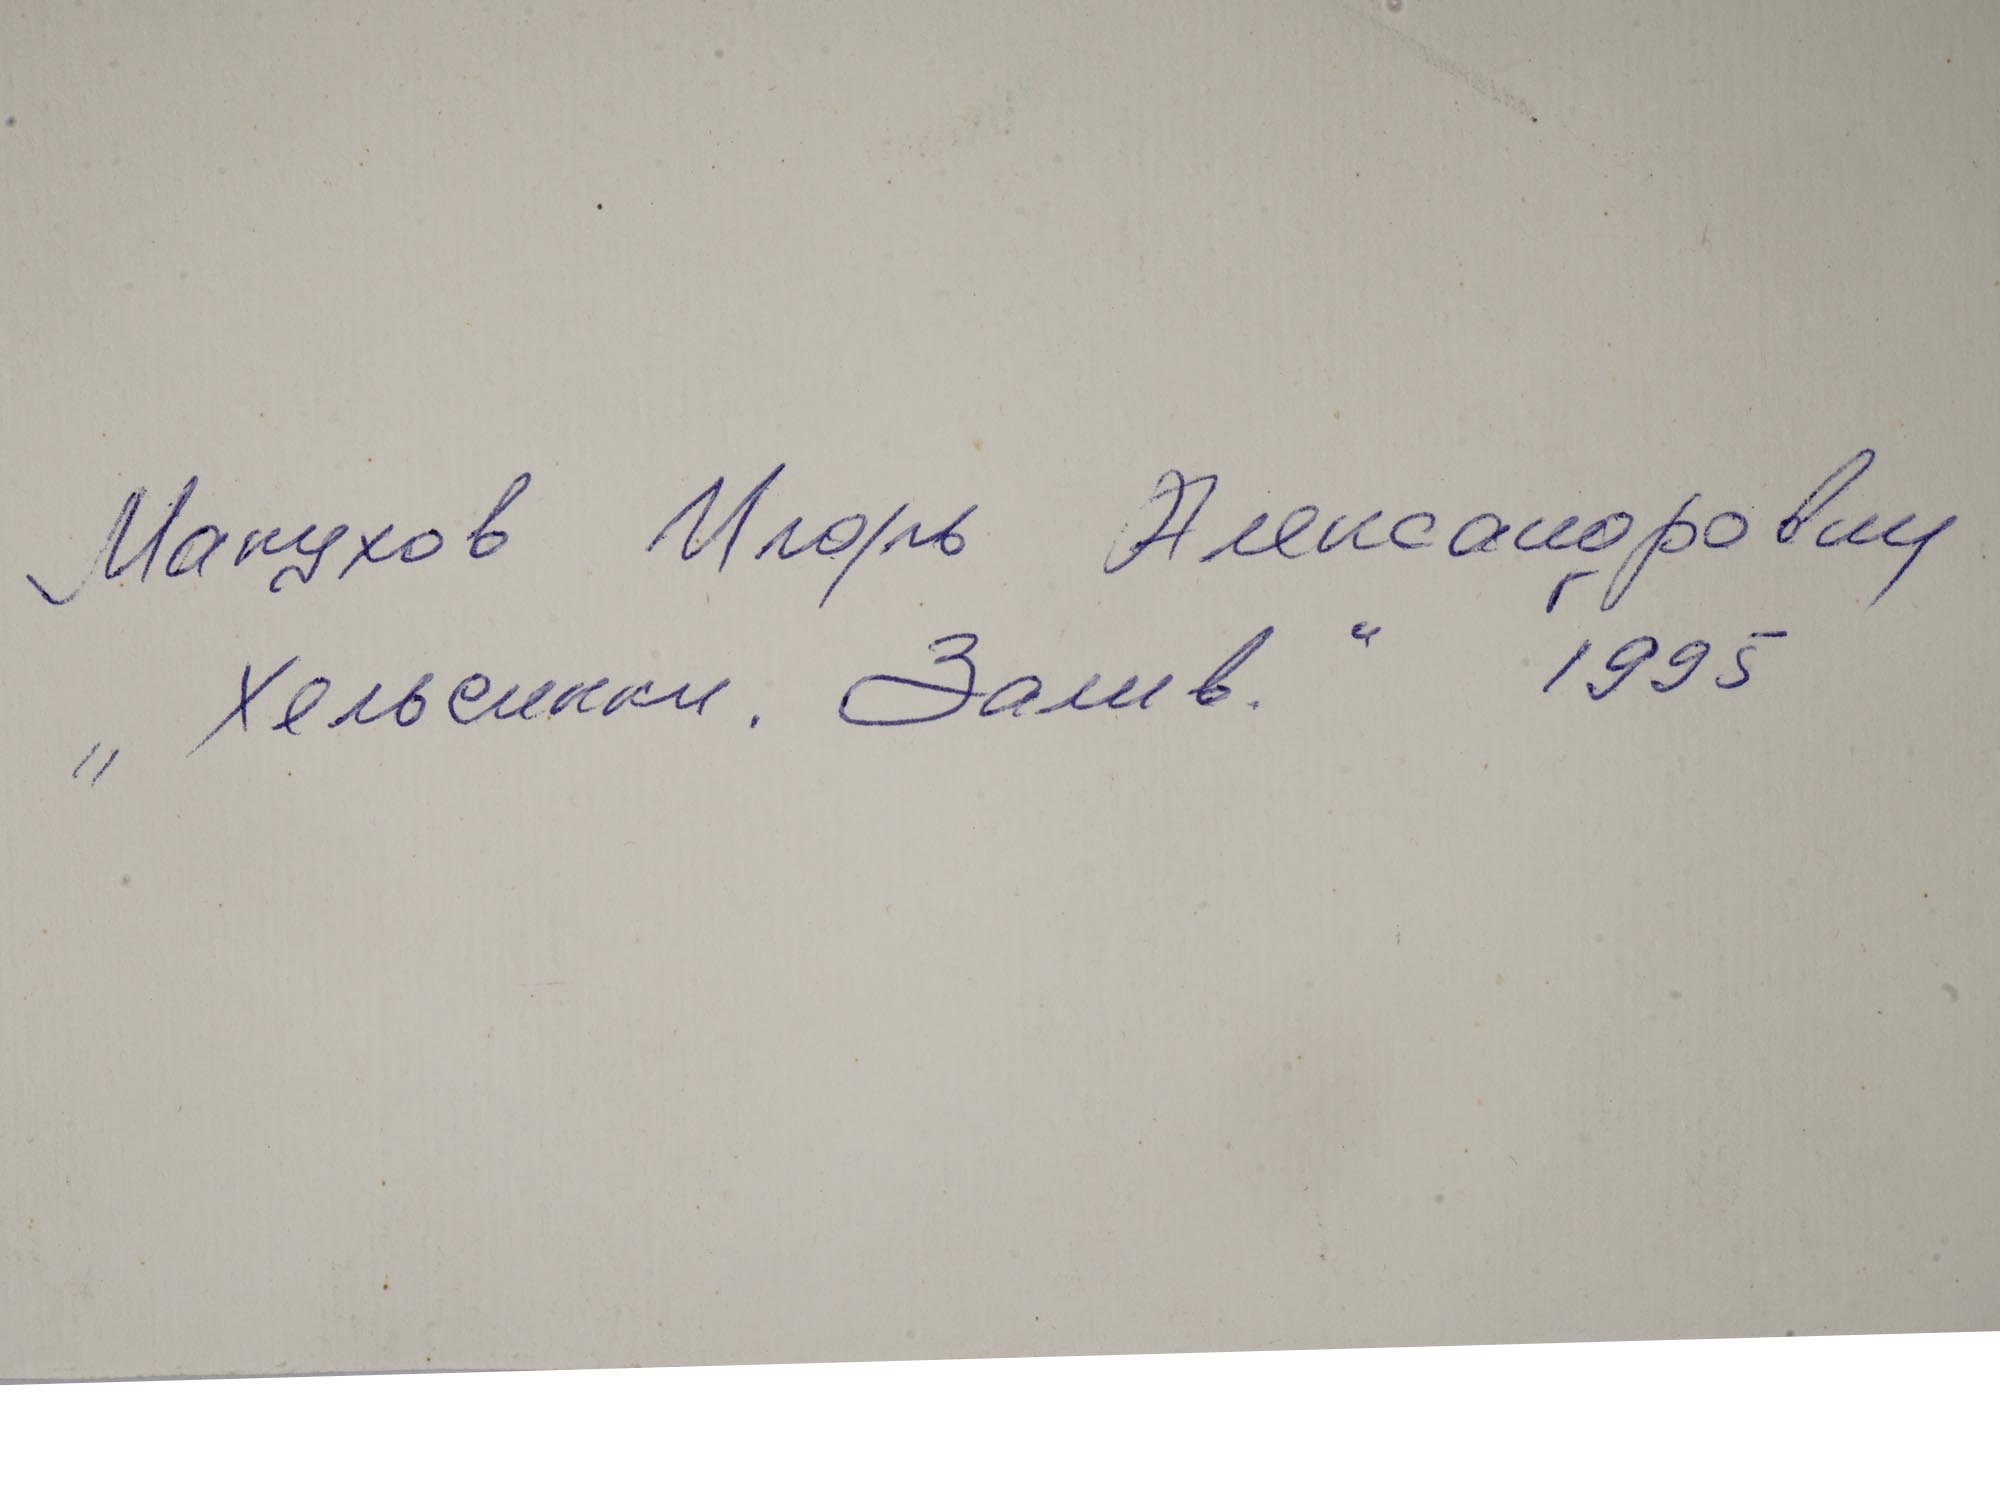 Манухов Игорь Александрович
„Хельсинки. Залив.“ 1995